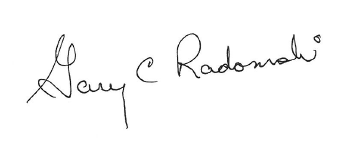 Gary C Radomski